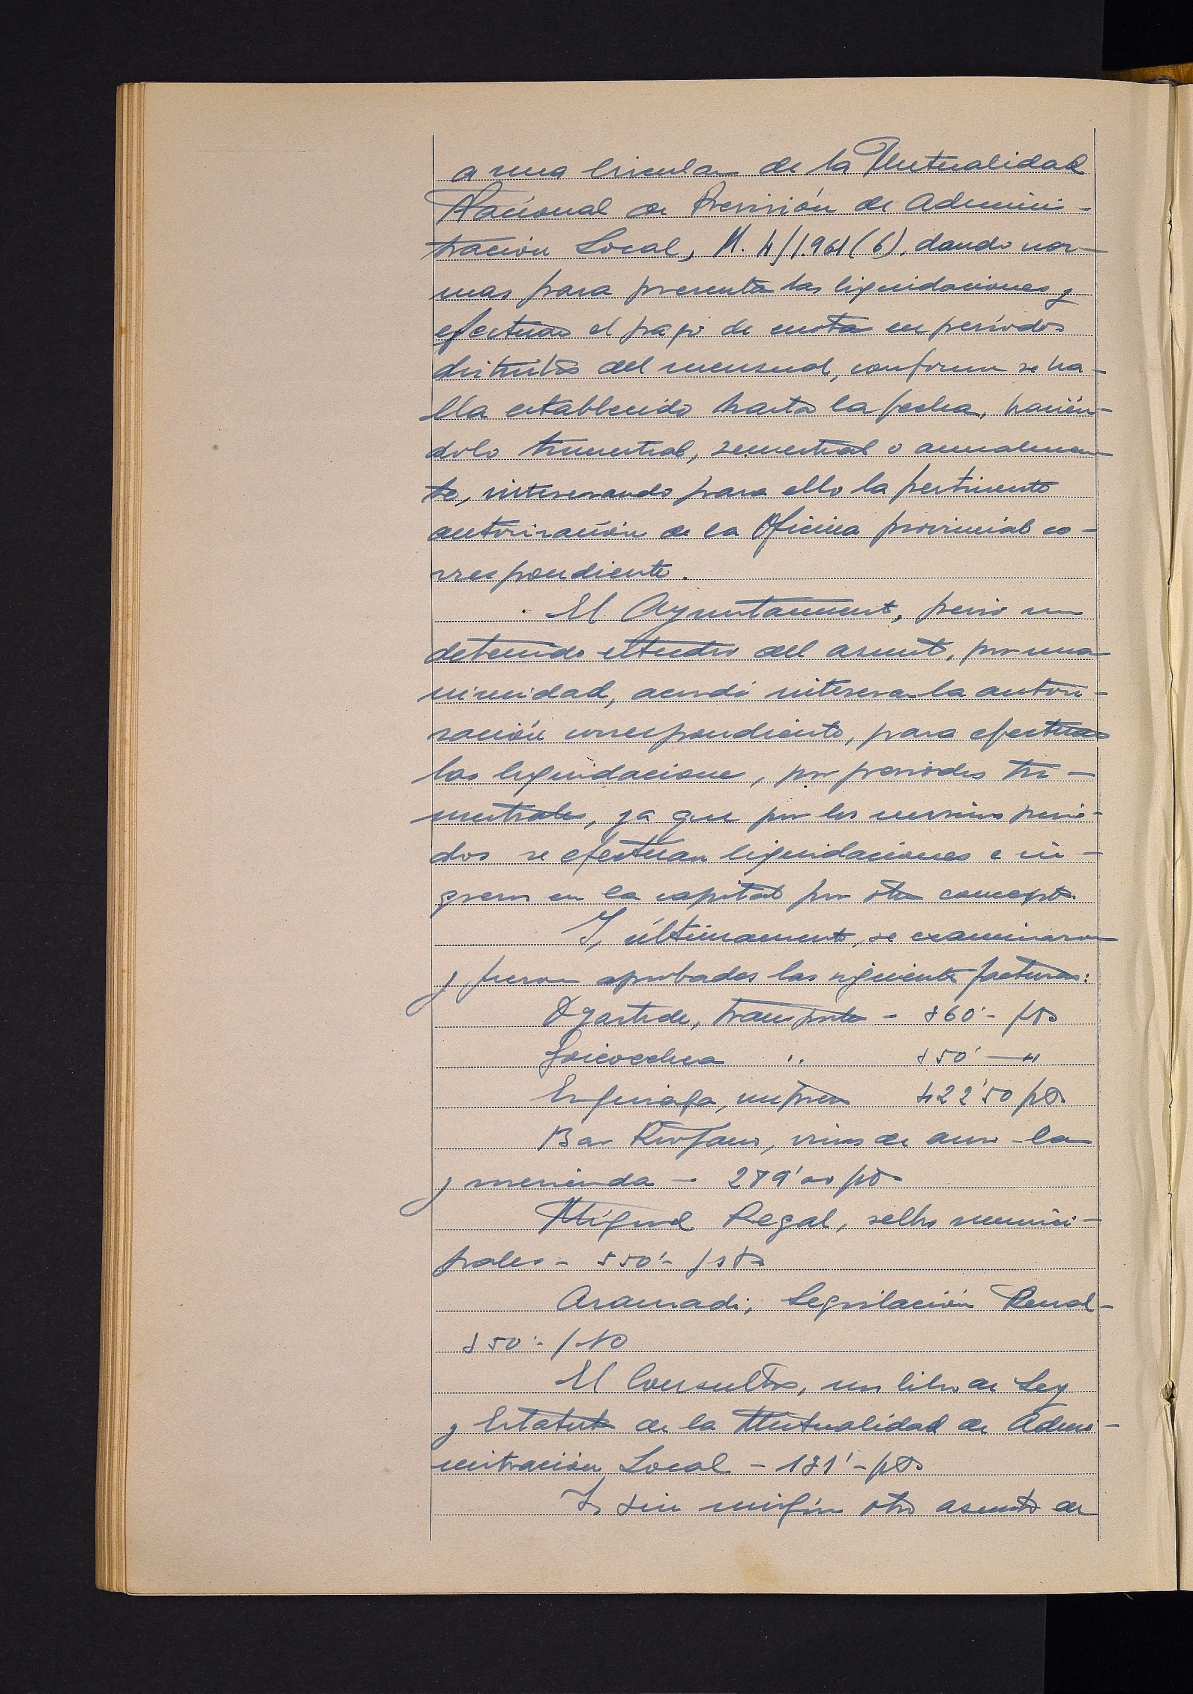 a una Circular de la Mutualidad
Nacional de Previsión de Adminis-
tración Local, M. 4/1.961 (6), dando nor-
mas para presentar las liquidaciones y
efectuar el pago de cuotas en períodos
distintos del mensual, conforme se ha-
lla establecido hasta la fecha, hacién-
dolo trimestral, semestral o anualmen-
te, interesando para ello la pertinente
autorización de la Oficina provincial co-
rrespondiente.
El Ayuntamiento, previo un
detenido estudio del asunto, por una-
nimidad, acordó interesar la autori-
zación correspondiente, para efectuar
las liquidaciones, por períodos tri-
mestrales, ya que por los mismos perío-
dos se efectúan liquidaciones e in-
gresos en la capital por otros conceptos.
Y, últimamente, se examinaron
y fueron aprobadas las siguientes facturas:
Ogartide, transporte - 860'- pts
Goicoechea " 850'- "
Enfuriafa, impresos 422'50 pts
Bar, vinos de
y merienda - 289'00 pts
Miguel Regal, sellos munici-
pales - 550'- pts
Aranzadi, Legislación Penal-
850'- pts
El Consultor, un libro de Ley
y Estatutos de la Mutualidad de Admi-
nistración Local - 181'- pts
Y sin ningún otro asunto de